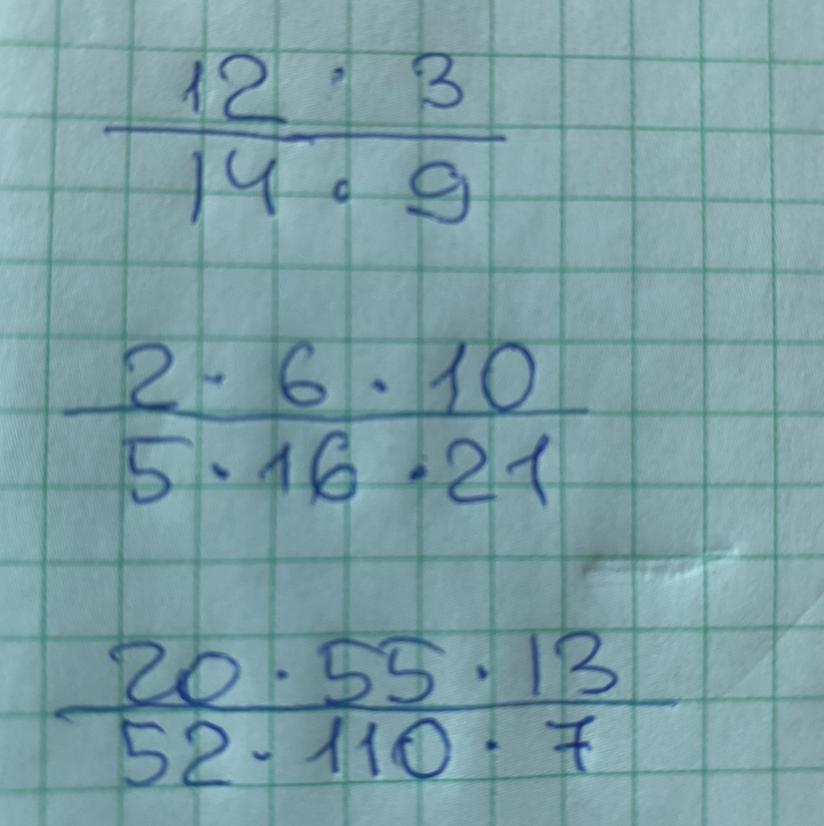 12 · 3
14 · 9
2 · 6 · 10
5 · 16 · 21
20 · 55 · 13
52 · 110 · 7